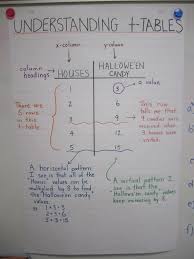 UNDERSTANDING t-TABLES
x-column
y-column
column headings
HOUSES
HALLOWEEN CANDY
a value
1
3
2
6
3
9
4
12
5
15
There are 5 rows in this t-table
This row tells me that 9 candies were received when 3 houses were visited.
A horizontal pattern I see is that all of the "Houses" values can be multiplied by 3 to find the "Halloween candy" values
1 × 3 = 3
2 × 3 = 6
5 × 3 = 15
A vertical pattern I see is that the "Halloween candy" values keep increasing by 3